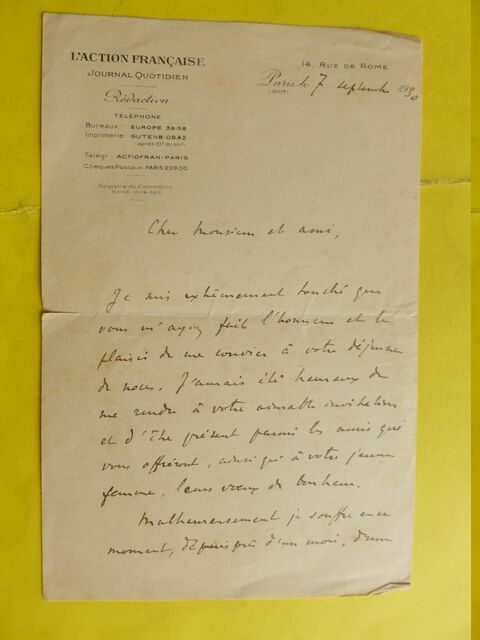 L'ACTION FRANÇAISE
JOURNAL QUOTIDIEN
Rédaction
TÉLÉPHONE
Bureaux: EUROPE 38-58
Imprimerie: GUTENB: 08.42
(après 10h du soir)
Télégr: ACTIOFRAN-PARIS
Chèques Postaux: PARIS 239.00
Registre du Commerce
14, RUE DE ROME
Paris, le 7 septembre 1930
(VIIIe)
Cher Monsieur et ami,
Je suis extrêmement touché que
vous m'ayez fait l'honneur et le
plaisir de me convier à votre déjeuner
de noces. J'aurais été heureux de
me rendre à votre aimable invitation
et d'être présent parmi les amis qui
vous offriront, ainsi qu'à votre jeune
femme, leurs vœux de bonheur.
Malheureusement je souffre en ce
moment, depuis près d'un mois, d'une